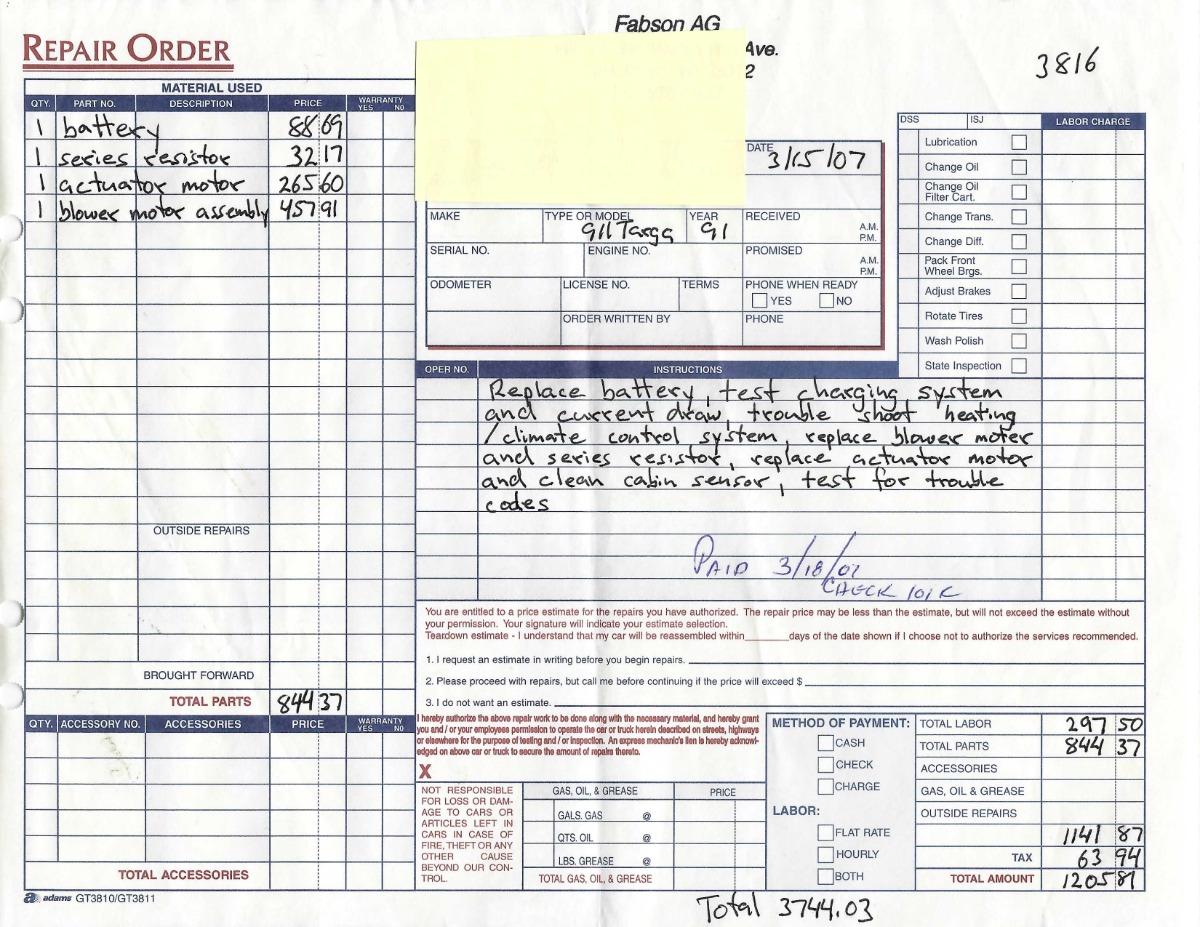 Fabson AG
Ave.
2
3816
REPAIR ORDER
MATERIAL USED
QTY. PART NO. DESCRIPTION PRICE WARRANTY YES NO
1 battery 88 69
1 series resistor 32 17
1 actuator motor 265 60
1 blower motor assembly 457 91
OUTSIDE REPAIRS
BROUGHT FORWARD
TOTAL PARTS 844 37
QTY. ACCESSORY NO. ACCESSORIES PRICE WARRANTY YES NO
TOTAL ACCESSORIES
adams GT3810/GT3811
DATE 3/15/07
MAKE TYPE OR MODEL 911 Targa YEAR 91 RECEIVED A.M. P.M.
SERIAL NO. ENGINE NO. PROMISED A.M. P.M.
ODOMETER LICENSE NO. TERMS PHONE WHEN READY
YES NO
ORDER WRITTEN BY PHONE
DSS ISJ LABOR CHARGE
Lubrication
Change Oil
Change Oil
Filter Cart.
Change Trans.
Change Diff.
Pack Front
Wheel Brgs.
Adjust Brakes
Rotate Tires
Wash Polish
State Inspection
OPER NO. INSTRUCTIONS
Replace battery, test charging system
and current draw, trouble shoot heating
/climate control system, replace blower moter
and series resistor, replace actuator motor
and clean cabin sensor, test for trouble
codes
PAID 3/18/07
CHECK
You are entitled to a price estimate for the repairs you have authorized. The repair price may be less than the estimate, but will not exceed the estimate without
your permission. Your signature will indicate your estimate selection.
Teardown estimate - I understand that my car will be reassembled within days of the date shown if I choose not to authorize the services recommended.
1. I request an estimate in writing before you begin repairs.
2. Please proceed with repairs, but call me before continuing if the price will exceed $
3. I do not want an estimate.
I hereby authorize the above repair work to be done along with the necessary material, and hereby grant
you and / or your employees permission to operate the car or truck herein described on streets, highways
or elsewhere for the purpose of testing and / or inspection. An express mechanic's lien is hereby acknowl-
edged on above car or truck to secure the amount of repairs thereto.
X
NOT RESPONSIBLE
FOR LOSS OR DAM-
AGE TO CARS OR
ARTICLES LEFT IN
CARS IN CASE OF
FIRE, THEFT OR ANY
OTHER CAUSE
BEYOND OUR CON-
TROL.
GAS, OIL, & GREASE PRICE
GALS. GAS @
QTS. OIL @
LBS. GREASE @
TOTAL GAS, OIL, & GREASE
METHOD OF PAYMENT:
CASH
CHECK
CHARGE
LABOR:
FLAT RATE
HOURLY
BOTH
TOTAL LABOR 297 50
TOTAL PARTS 844 37
ACCESSORIES
GAS, OIL & GREASE
OUTSIDE REPAIRS
1141 87
TAX 63 94
TOTAL AMOUNT 1205 81
Total 3744.03